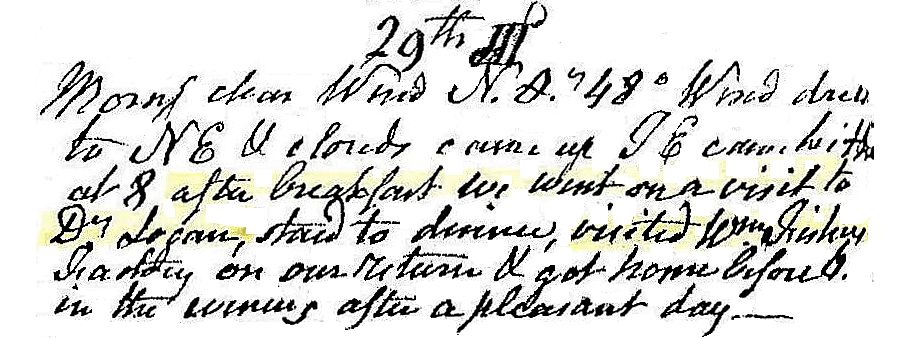 29th
Morng clear Wind N. & 48° Wind drew
to NE & clouds came up T E came hither
at 8 after breakfast we went on a visit to
Dr Logan, staid to dinner, visited Wm Fishers
on our return & got home before 8.
in the evening after a pleasant day —